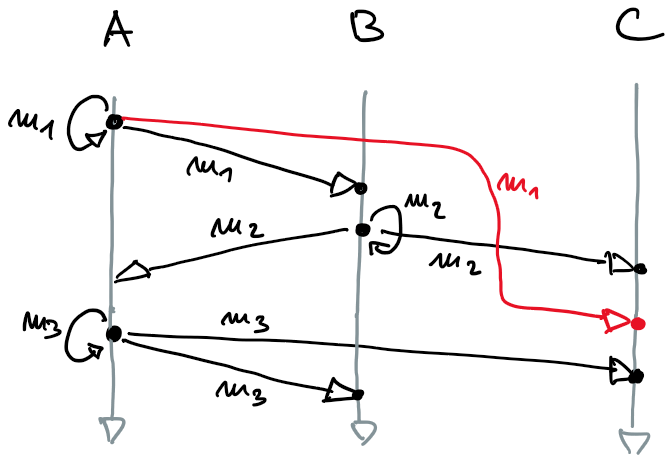 A B C
m1
m1
m1
m2
m2
m2
m3
m3
m3